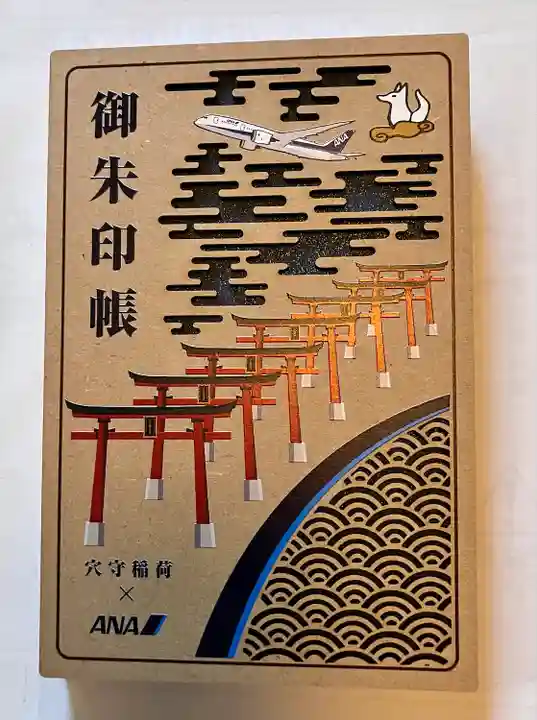 御朱印帳
ANA
穴守稲荷
×
ANA